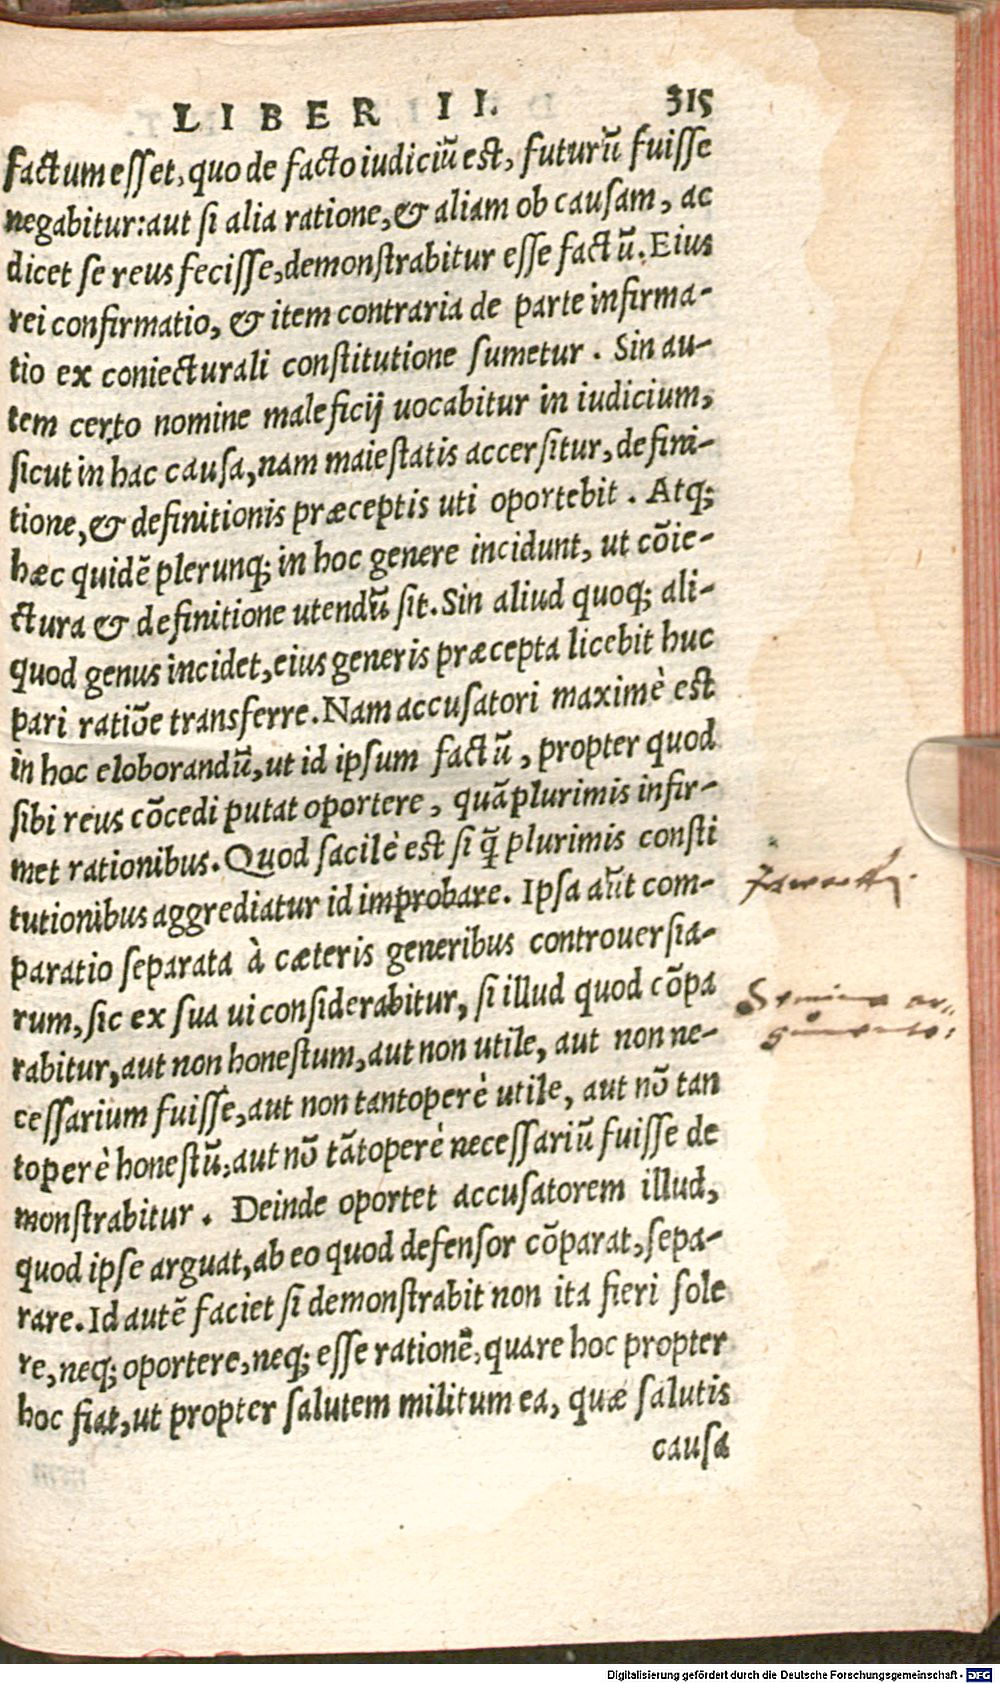 LIBER II. 315
factum esset, quo de facto iudiciũ est, futurũ fuisse
negabitur: aut si alia ratione, & aliam ob causam, ac
dicet se reus fecisse, demonstrabitur esse factũ. Eius
rei confirmatio, & item contraria de parte infirma-
tio ex coniecturali constitutione sumetur. Sin au-
tem certo nomine maleficij uocabitur in iudicium,
sicut in hac causa, nam maiestatis accersitur, defini-
tione, & definitionis præceptis uti oportebit. Atq;
hæc quidẽ plerunq; in hoc genere incidunt, ut cõie-
ctura & definitione utendũ sit. Sin aliud quoq; ali-
quod genus incidet, eius generis præcepta licebit huc
pari ratiõe transferre. Nam accusatori maximè est
in hoc eloborandũ, ut id ipsum factũ, propter quod
sibi reus cõcedi putat oportere, quãplurimis infir-
met rationibus. Quod facilè est si q̃ plurimis consti
tutionibus aggrediatur id improbare. Ipsa aũt com-
paratio separata à cæteris generibus controuersia-
rum, sic ex sua ui considerabitur, si illud quod cõpa
rabitur, aut non honestum, aut non utile, aut non ne-
cessarium fuisse, aut non tantoperè utile, aut nõ tan
toperè honestũ, aut nõ tãtoperè necessariũ fuisse de
monstrabitur. Deinde oportet accusatorem illud,
quod ipse arguat, ab eo quod defensor cõparat, sepa-
rare. Id autẽ faciet si demonstrabit non ita fieri sole
re, neq; oportere, neq; esse rationẽ, quare hoc propter
hoc fiat, ut propter salutem militum ea, quæ salutis
causa
Digitalisierung gefördert durch die Deutsche Forschungsgemeinschaft - DFG